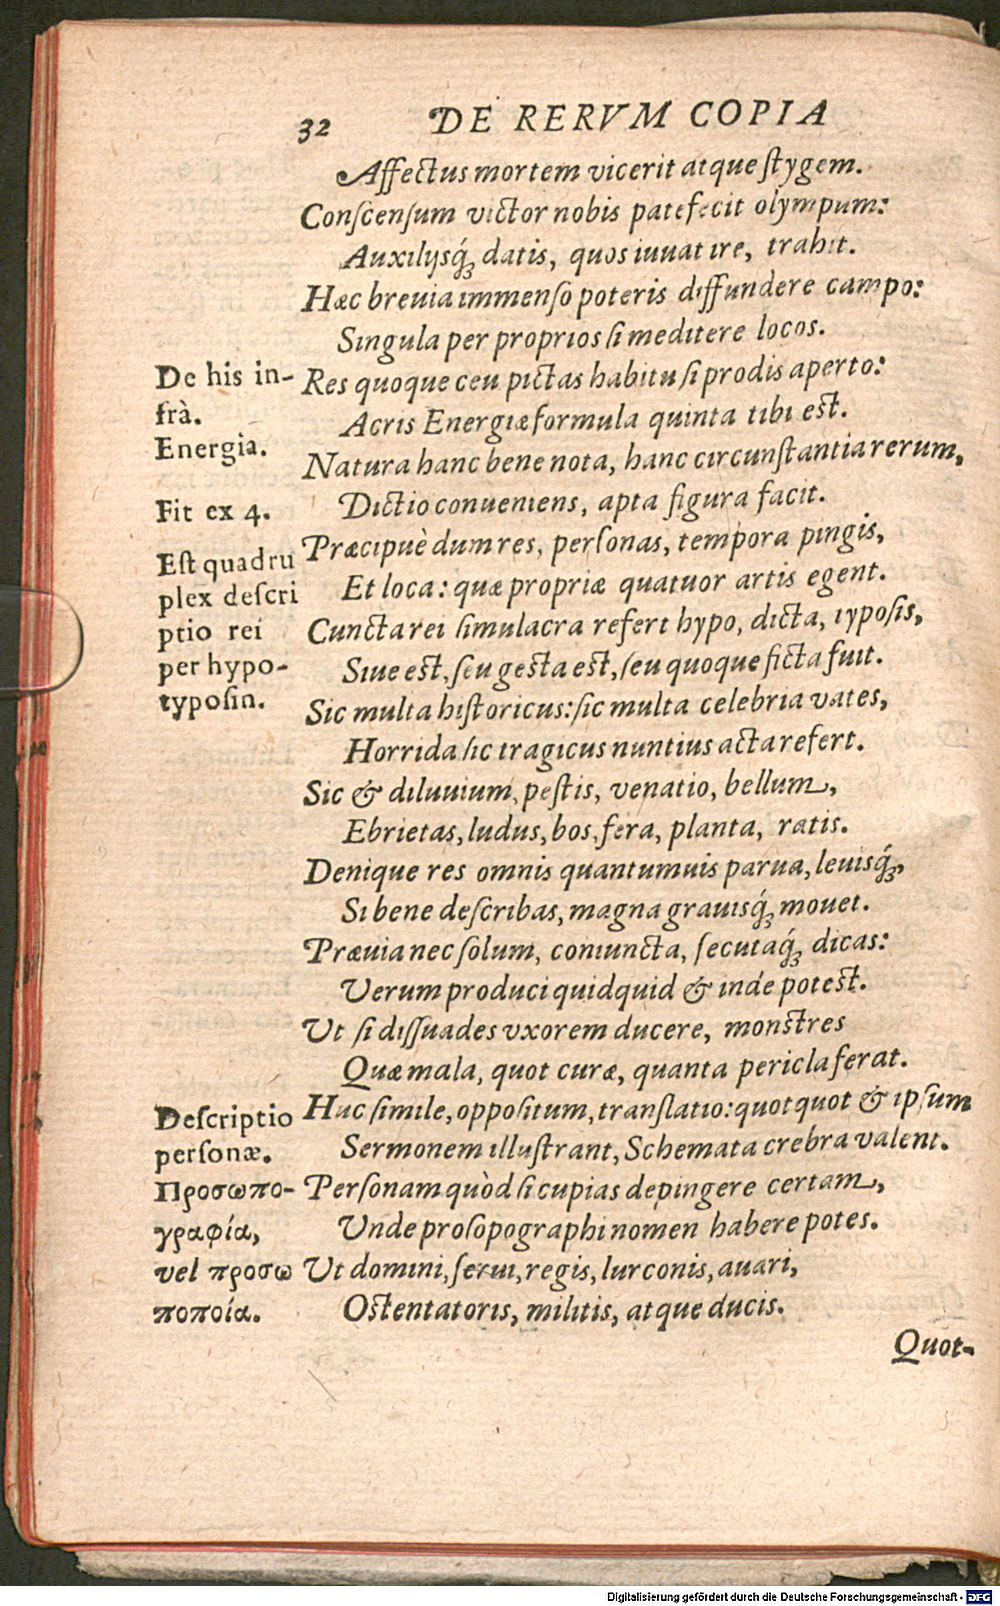 32 DE RERVM COPIA
Affectus mortem vicerit atque ſtygem.
Conſcenſum victor nobis patefecit olympum:
Auxilijsq́; datis, quos iuuat ire, trahit.
Hæc breuia immenſo poteris diffundere campo:
Singula per proprios ſi meditere locos.
De his in-
frà.
Res quoque ceu pictas habitu ſi prodis aperto:
Acris Energiæ formula quinta tibi eſt.
Energia.
Natura hanc bene nota, hanc circunſtantia rerum,
Dictio conueniens, apta figura facit.
Fit ex 4.
Præcipuè dum res, perſonas, tempora pingis,
Et loca: quæ propriæ quatuor artis egent.
Eſt quadru
plex deſcri
ptio rei
per hypo-
typoſin.
Cuncta rei ſimulacra refert hypo, dicta, typoſis,
Siue eſt, ſeu geſta eſt, ſeu quoque ficta fuit.
Sic multa hiſtoricus: ſic multa celebria vates,
Horrida ſic tragicus nuntius acta refert.
Sic & diluuium, peſtis, venatio, bellum,
Ebrietas, ludus, bos, fera, planta, ratis.
Denique res omnis quantumuis parua, leuisq́;,
Si bene deſcribas, magna grauisq́; mouet.
Præuia nec ſolum, coniuncta, ſecutaq́; dicas:
Verum produci quidquid & inde poteſt.
Ut ſi diſſuades vxorem ducere, monſtres
Quæ mala, quot curæ, quanta pericla ferat.
Huc ſimile, oppoſitum, tranſlatio: quotquot & ipſum
Sermonem illuſtrant, Schemata crebra valent.
Deſcriptio
perſonæ.
Προσωπο-
γραφία,
vel προσω
ποποιία.
Perſonam quòd ſi cupias depingere certam,
Unde proſopographi nomen habere potes.
Ut domini, ſerui, regis, lurconis, auari,
Oſtentatoris, militis, atque ducis.
Quot-
Digitalisierung gefördert durch die Deutsche Forschungsgemeinschaft - DFG